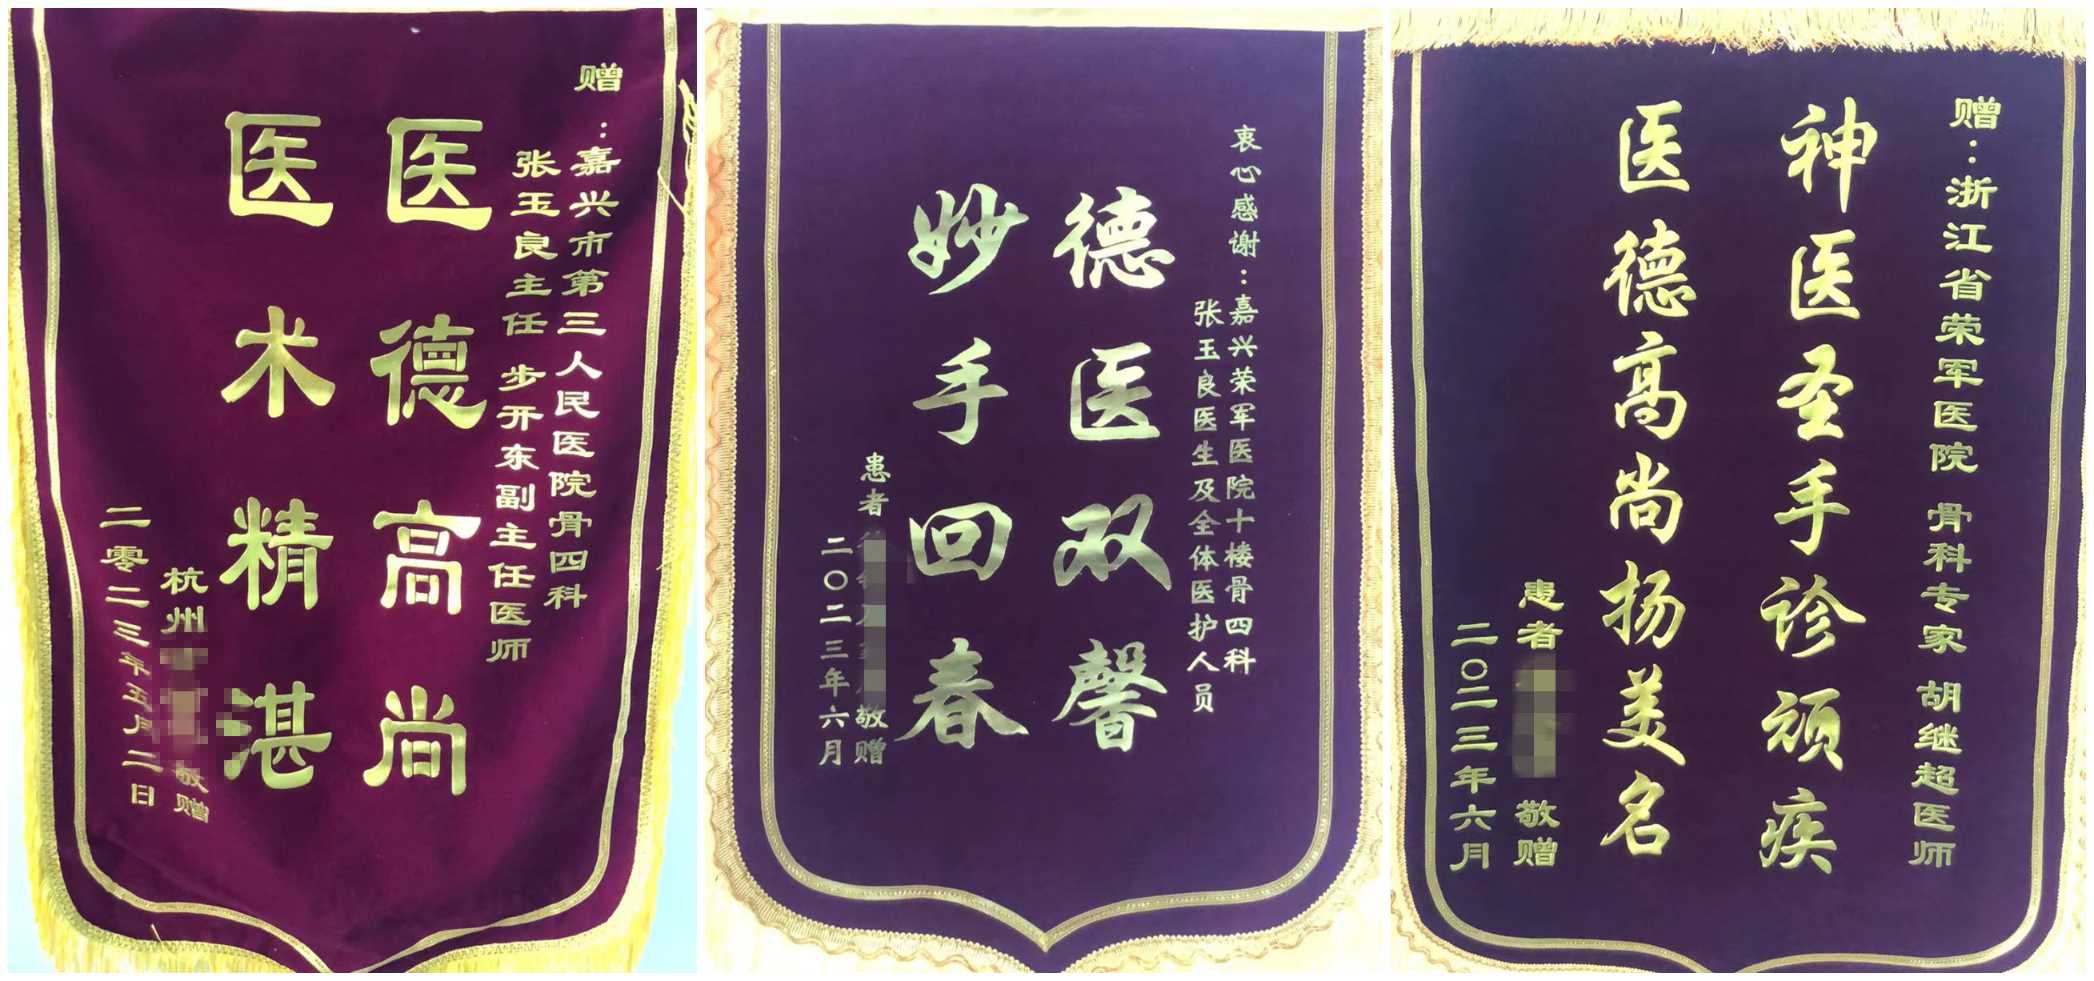 赠：嘉兴市第三人民医院骨四科
张玉良主任 步开东副主任医师
医德高尚
医术精湛
杭州
敬赠
二零二三年五月二日
衷心感谢：嘉兴荣军医院十楼骨四科
张玉良医生及全体医护人员
德医双馨
妙手回春
患者
敬赠
二〇二三年六月
赠：浙江省荣军医院 骨科专家 胡继超医师
神医圣手诊顽疾
医德高尚扬美名
患者
敬赠
二〇二三年六月